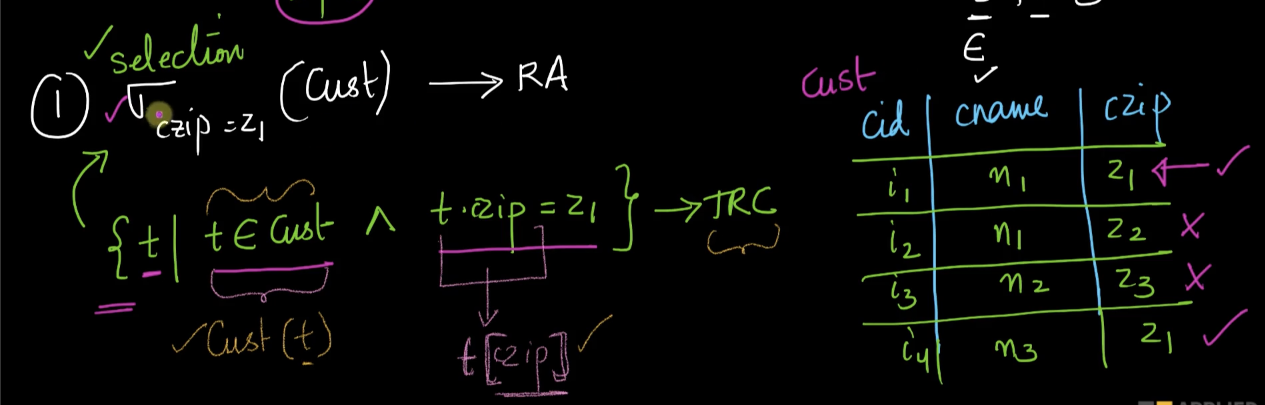 ✓ selection
① ✓ σ czip = z1 (Cust) → RA
{ t | t ∈ Cust ∧ t.czip = z1 } → TRC
✓ Cust(t)
t[czip] ✓
∈
✓
Cust
cid cname czip
i1 n1 z1 ← ✓
i2 n1 z2 ✗
i3 n2 z3 ✗
i4 n3 z1 ✓